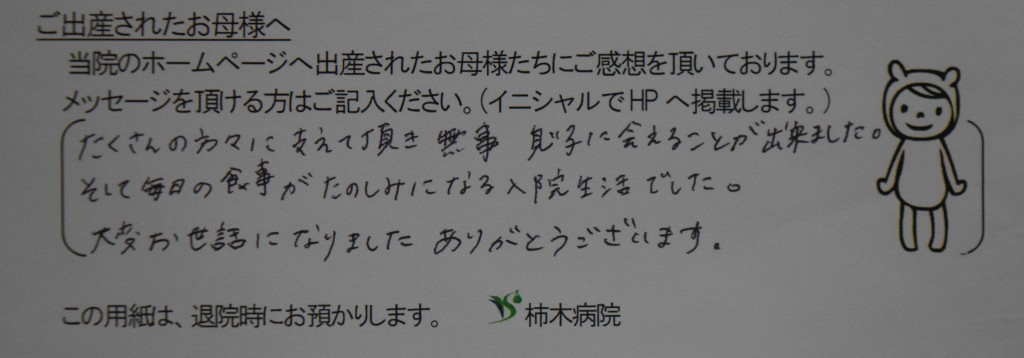 ご出産されたお母様へ
当院のホームページへ出産されたお母様たちにご感想を頂いております。
メッセージを頂ける方はご記入ください。(イニシャルでHPへ掲載します。)
たくさんの方々に支えて頂き 無事 息子に会えることが出来ました。
そして毎日の食事がたのしみになる入院生活でした。
大変お世話になりました ありがとうございます。
この用紙は、退院時にお預かりします。 柿木病院